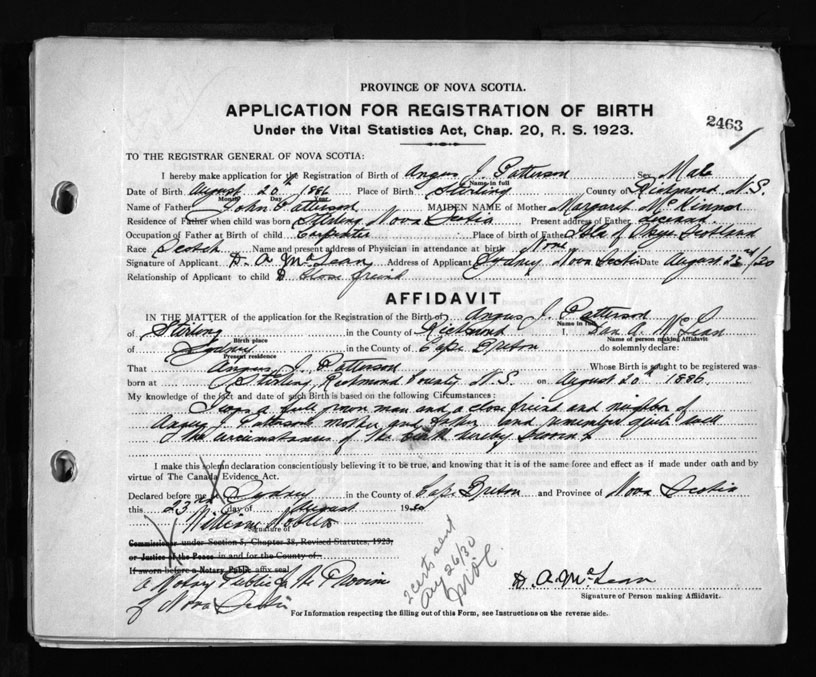 PROVINCE OF NOVA SCOTIA.
APPLICATION FOR REGISTRATION OF BIRTH
2463
Under the Vital Statistics Act, Chap. 20, R. S. 1923.
TO THE REGISTRAR GENERAL OF NOVA SCOTIA:
I hereby make application for the Registration of Birth of Angus J. Patterson Sex Male
Name in full
Date of Birth August 20th 1886 Place of Birth Stirling County of Richmond N.S.
Month Day Year
Name of Father John Patterson MAIDEN NAME of Mother Margaret McKinnon
Residence of Father when child was born Stirling Nova Scotia Present address of Father deceased
Occupation of Father at Birth of child Carpenter Place of birth of Father Isle of Skye Scotland
Race Scotch Name and present address of Physician in attendance at birth None
Signature of Applicant D. A. McLean Address of Applicant Sydney Nova Scotia Date August
Relationship of Applicant to child Close friend
AFFIDAVIT
IN THE MATTER of the application for the Registration of the Birth of Angus J. Patterson
Name in full
of Stirling in the County of Richmond I, Dan A. McLean
Birth place Name of person making Affidavit
of Sydney in the County of Cape Breton do solemnly declare:
Present residence
That Angus J. Patterson Whose Birth is sought to be registered was
born at Stirling, Richmond County N.S. on August 20th 1886.
My knowledge of the fact and date of such Birth is based on the following Circumstances:
I was a full grown man and a close friend and neighbor of
Angus J. Patterson's mother and father and remember quite well
the circumstances of the birth hereby sworn to
I make this solemn declaration conscientiously believing it to be true, and knowing that it is of the same force and effect as if made under oath and by
virtue of The Canada Evidence Act.
Declared before me at Sydney in the County of Cape Breton and Province of Nova Scotia
this 23rd day of August 19
William
Signature of
Commissioner under Section 5, Chapter 38, Revised Statutes, 1923,
or Justice of the Peace in and for the County of
If sworn before a Notary Public affix seal
A Notary Public in the Province
of Nova Scotia
2 certs sent
Aug 26/30
D. A. McLean
Signature of Person making Affidavit.
For Information respecting the filling out of this Form, see Instructions on the reverse side.